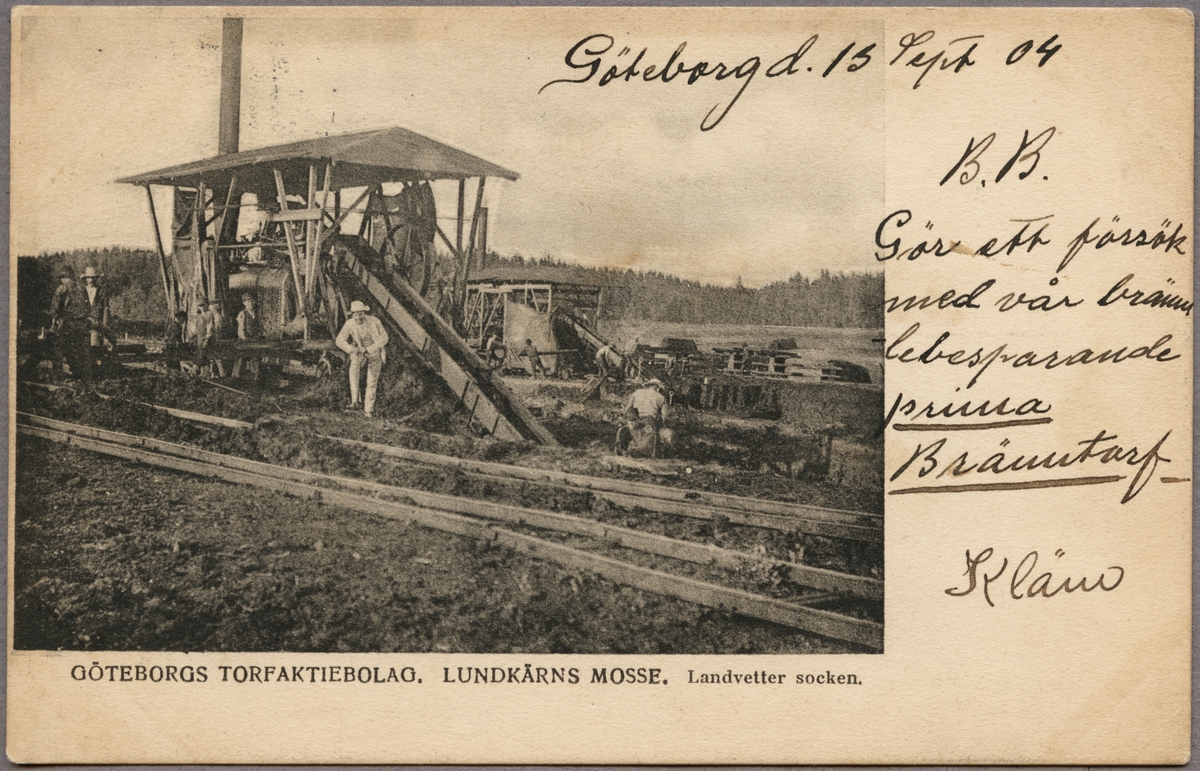 Göteborg d. 13 Sept 04
B. B.
Gör ett försök
med vår bränn
lebesparande
prima
Bränntorf
Kläm
GÖTEBORGS TORFAKTIEBOLAG. LUNDKÄRNS MOSSE. Landvetter socken.